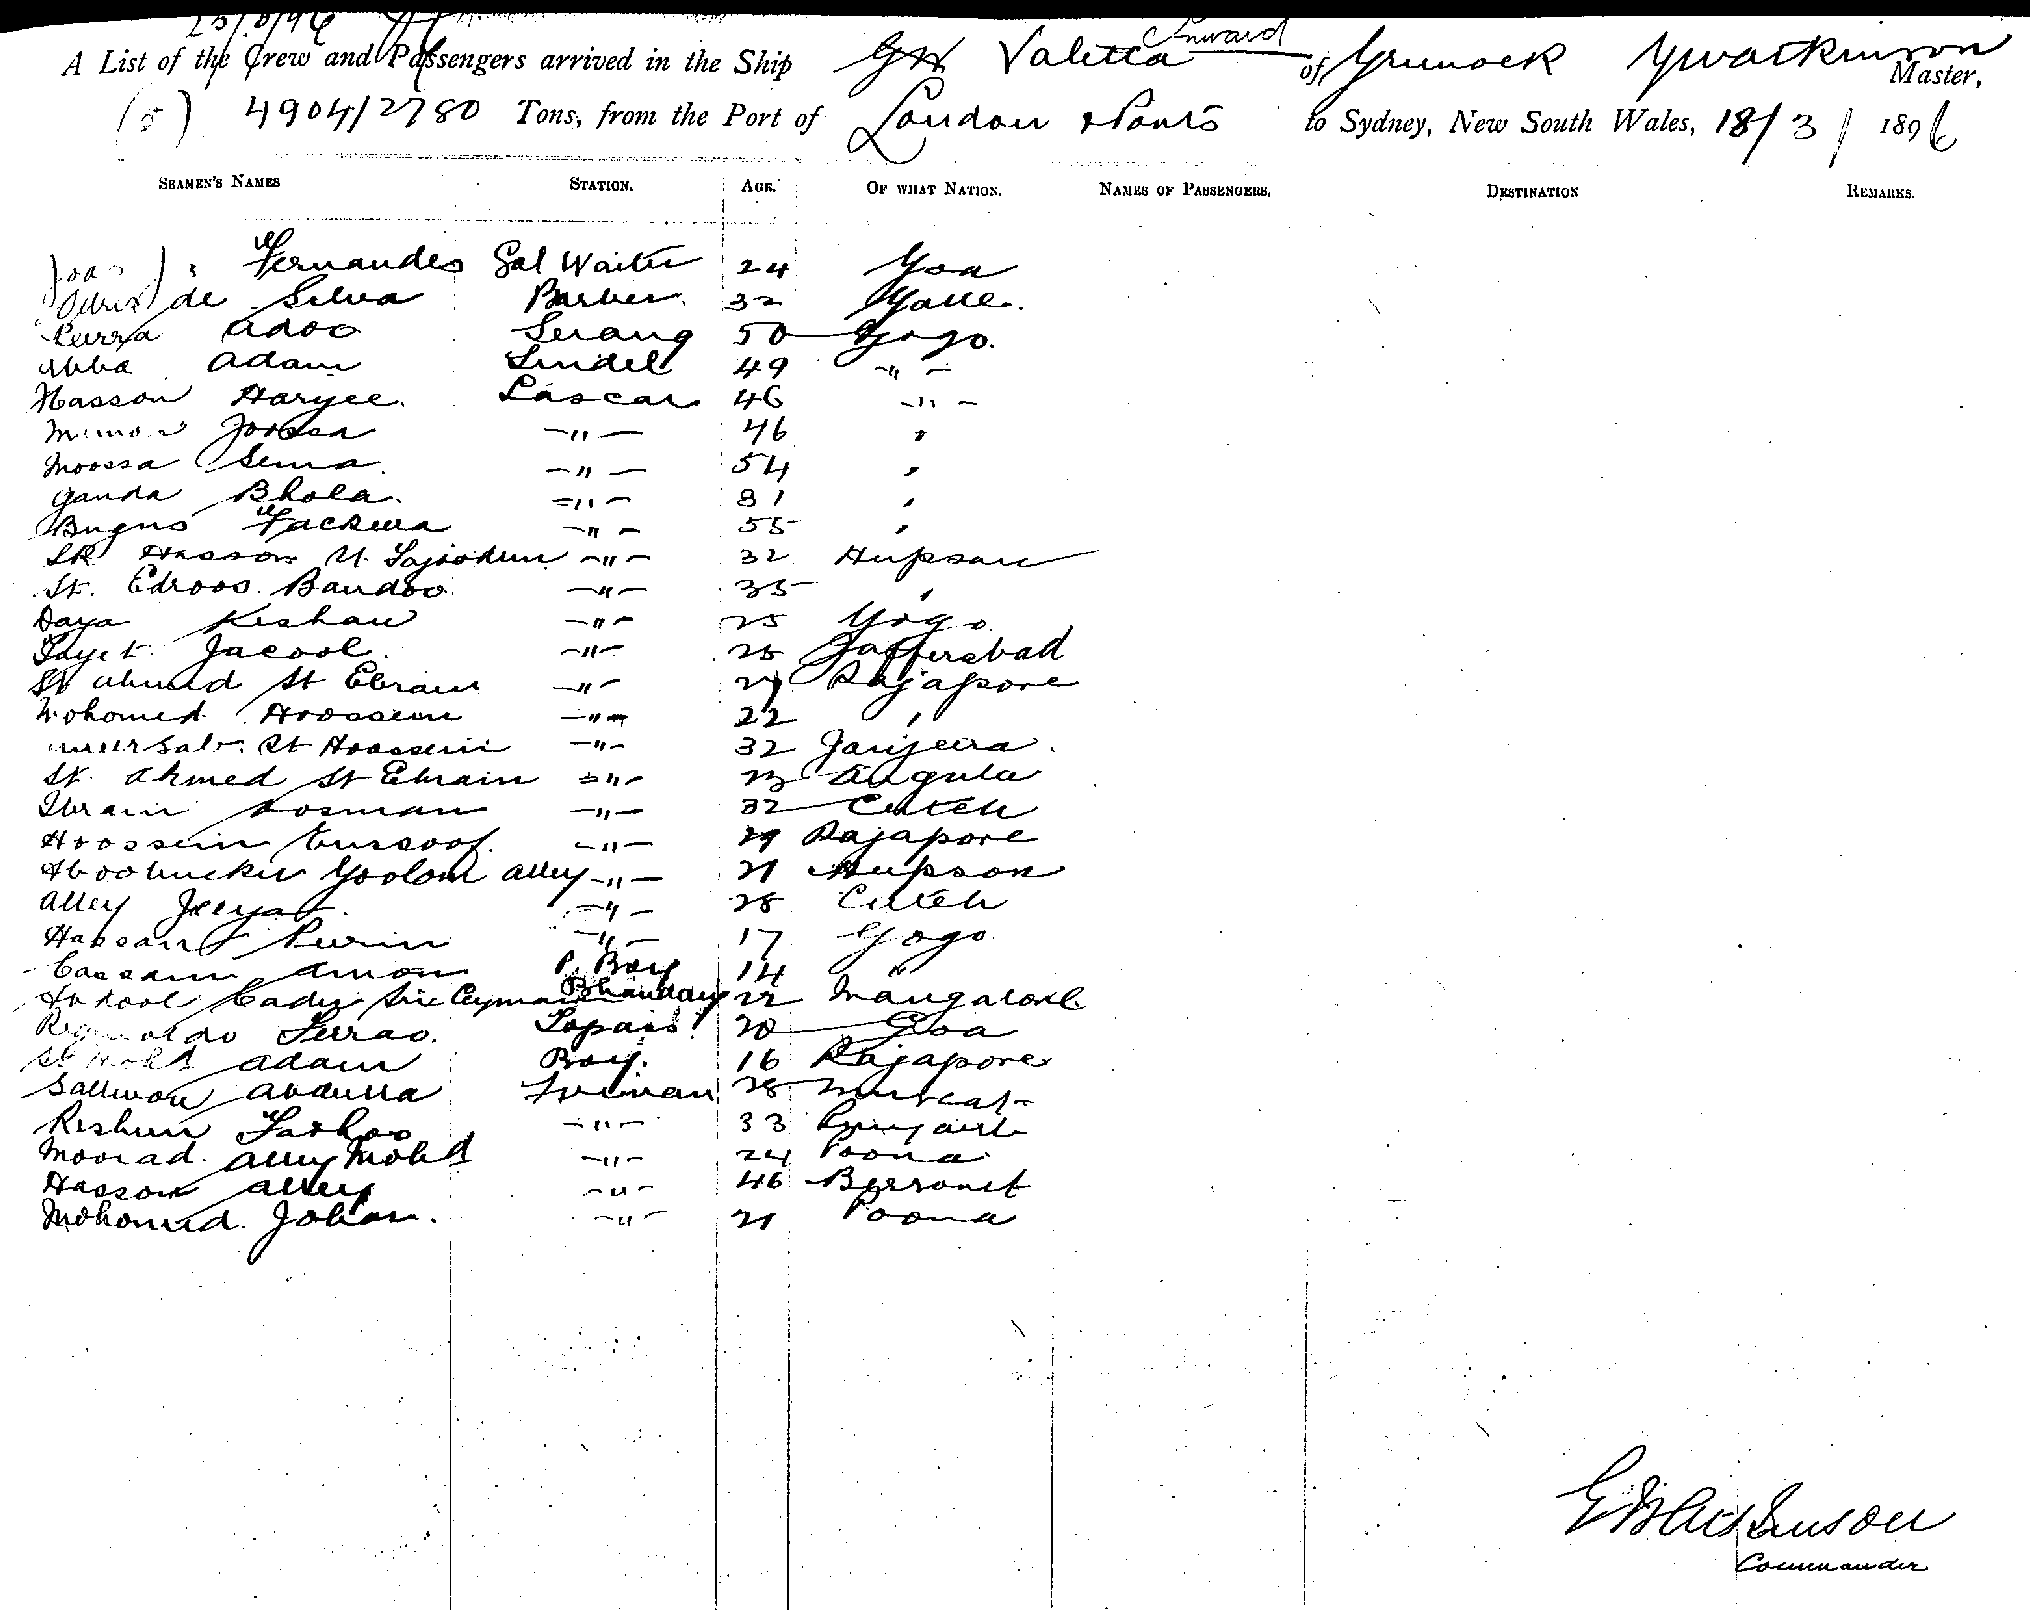 Onward
A List of the Crew and Passengers arrived in the Ship Valetta of Greenock G W Atkinson Master,
(5) 4904/2780 Tons, from the Port of London & Ports to Sydney, New South Wales, 18/3/1896
SEAMEN'S NAMES STATION. AGE. OF WHAT NATION. NAMES OF PASSENGERS. DESTINATION REMARKS.
Fernandes Sal Waiter 24 Goa
de Silva Barber. 32 Galle.
Adoo Serang 50 Gogo.
Abba Adam Tindel 49 -"-
Hasson Haryee. Lascar 46 -"-
Joossa -"- 46 "
Moossa Sema. -"- 54 "
Ganda Bhola. -"- 31 "
Fackera -"- 55 "
SK Hasson -"- 32 Hupson
St. Edroos. Bandoo. -"- 35 "
Daya Keshaw -"- 25 Gogo
Jacool. -"- 25 Jafferabad
St Ahmed St Ebraim -"- 27 Rajapore
Mohomed Hoossein -"- 22 "
St Hoossein -"- 32 Janjeera.
St. Ahmed St Ebraim -"- 23 Angula
Ibraim Oosman -"- 32 Cutch
Hoossein Eussoof. -"- 29 Rajapore
Aboobucker Goolam Alley -"- 21 Hupson
Alley -"- 28 Cutch
Hassan Perin -"- 17 Gogo
Cassam Amon P. Boy 14 "
Cader Bhandary 22 Mangalore
Reginaldo Serrao. Topass 20 Goa
St Mohd Adam Boy. 16 Rajapore
Sallimon Abdulla Fireman 28 Muscat
-"- 33
Moorad. Alley Mohd -"- 24 Poona
Hasson Alley -"- 46
Mohomed. Johan. -"- 21 Poona
G W Atkinson
Commander